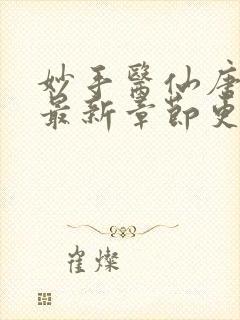 妙手醫仙唐
最新章節更
崔燦